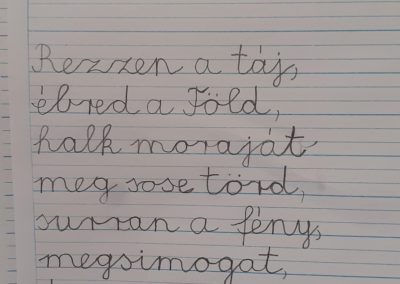 Rezzen a táj,
ébred a Föld,
halk moraját
meg sose törd,
surran a fény,
megsimogat,